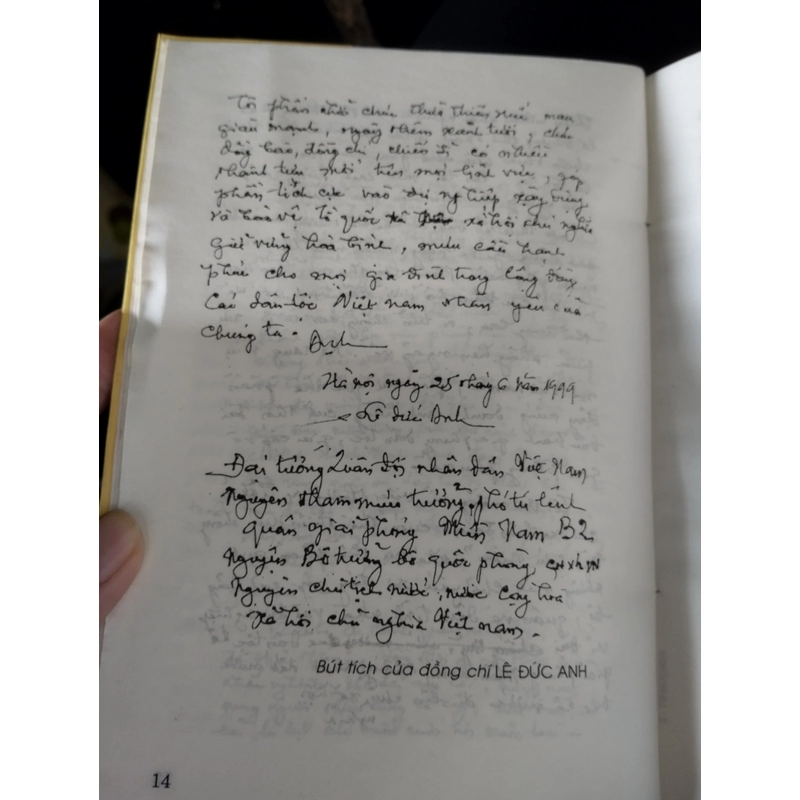 Tôi phấn khởi chúc Thừa Thiên Huế mau
giàu mạnh, ngày thêm xanh tươi, chúc
đồng bào, đồng chí, chiến sĩ có nhiều
thành tựu mới trên mọi lĩnh vực, góp
phần tích cực vào sự nghiệp xây dựng
và bảo vệ tổ quốc xã hội chủ nghĩa
giữ vững hoà bình, mưu cầu hạnh
phúc cho mọi gia đình trong cộng đồng
các dân tộc Việt nam thân yêu của
chúng ta. Anh
Hà nội ngày 25 tháng 6 năm 1999
Lê đức Anh
Đại tướng Quân đội nhân dân Việt Nam
Nguyên tham mưu trưởng, phó tư lệnh
quân giải phóng Miền Nam B2
Nguyên Bộ trưởng bộ quốc phòng CHXHCNVN
Nguyên chủ tịch nước, nước Cộng hoà
Xã hội chủ nghĩa Việt nam.
Bút tích của đồng chí LÊ ĐỨC ANH
14